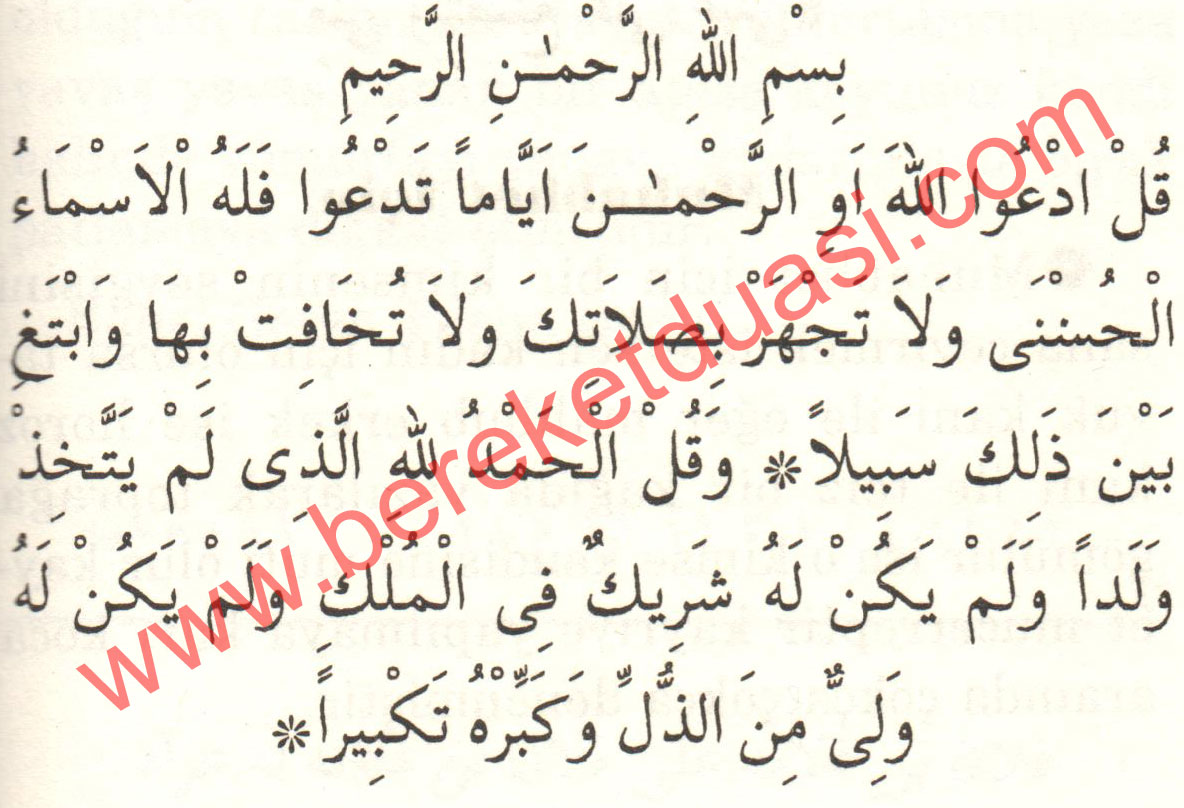 بِسْمِ اللهِ الرَّحْمٰنِ الرَّحِيمِ
قُلْ ادْعُوا اللهَ اَوِ الرَّحْمٰنَ اَيَّاماً تَدْعُوا فَلَهُ الْاَسْمَاءُ
الْحُسْنٰى وَلَا تَجْهَرْ بِصَلَاتِكَ وَلَا تُخَافِتْ بِهَا وَابْتَغِ
بَيْنَ ذَلِكَ سَبِيلاً * وَقُلْ الْحَمْدُ للهِ الَّذِى لَمْ يَتَّخِذْ
وَلَداً وَلَمْ يَكُنْ لَهُ شَرِيكٌ فِى الْمُلْكِ وَلَمْ يَكُنْ لَهُ
وَلِىٌّ مِنَ الذُّلِّ وَكَبِّرْهُ تَكْبِيراً *
www.bereketduasi.com